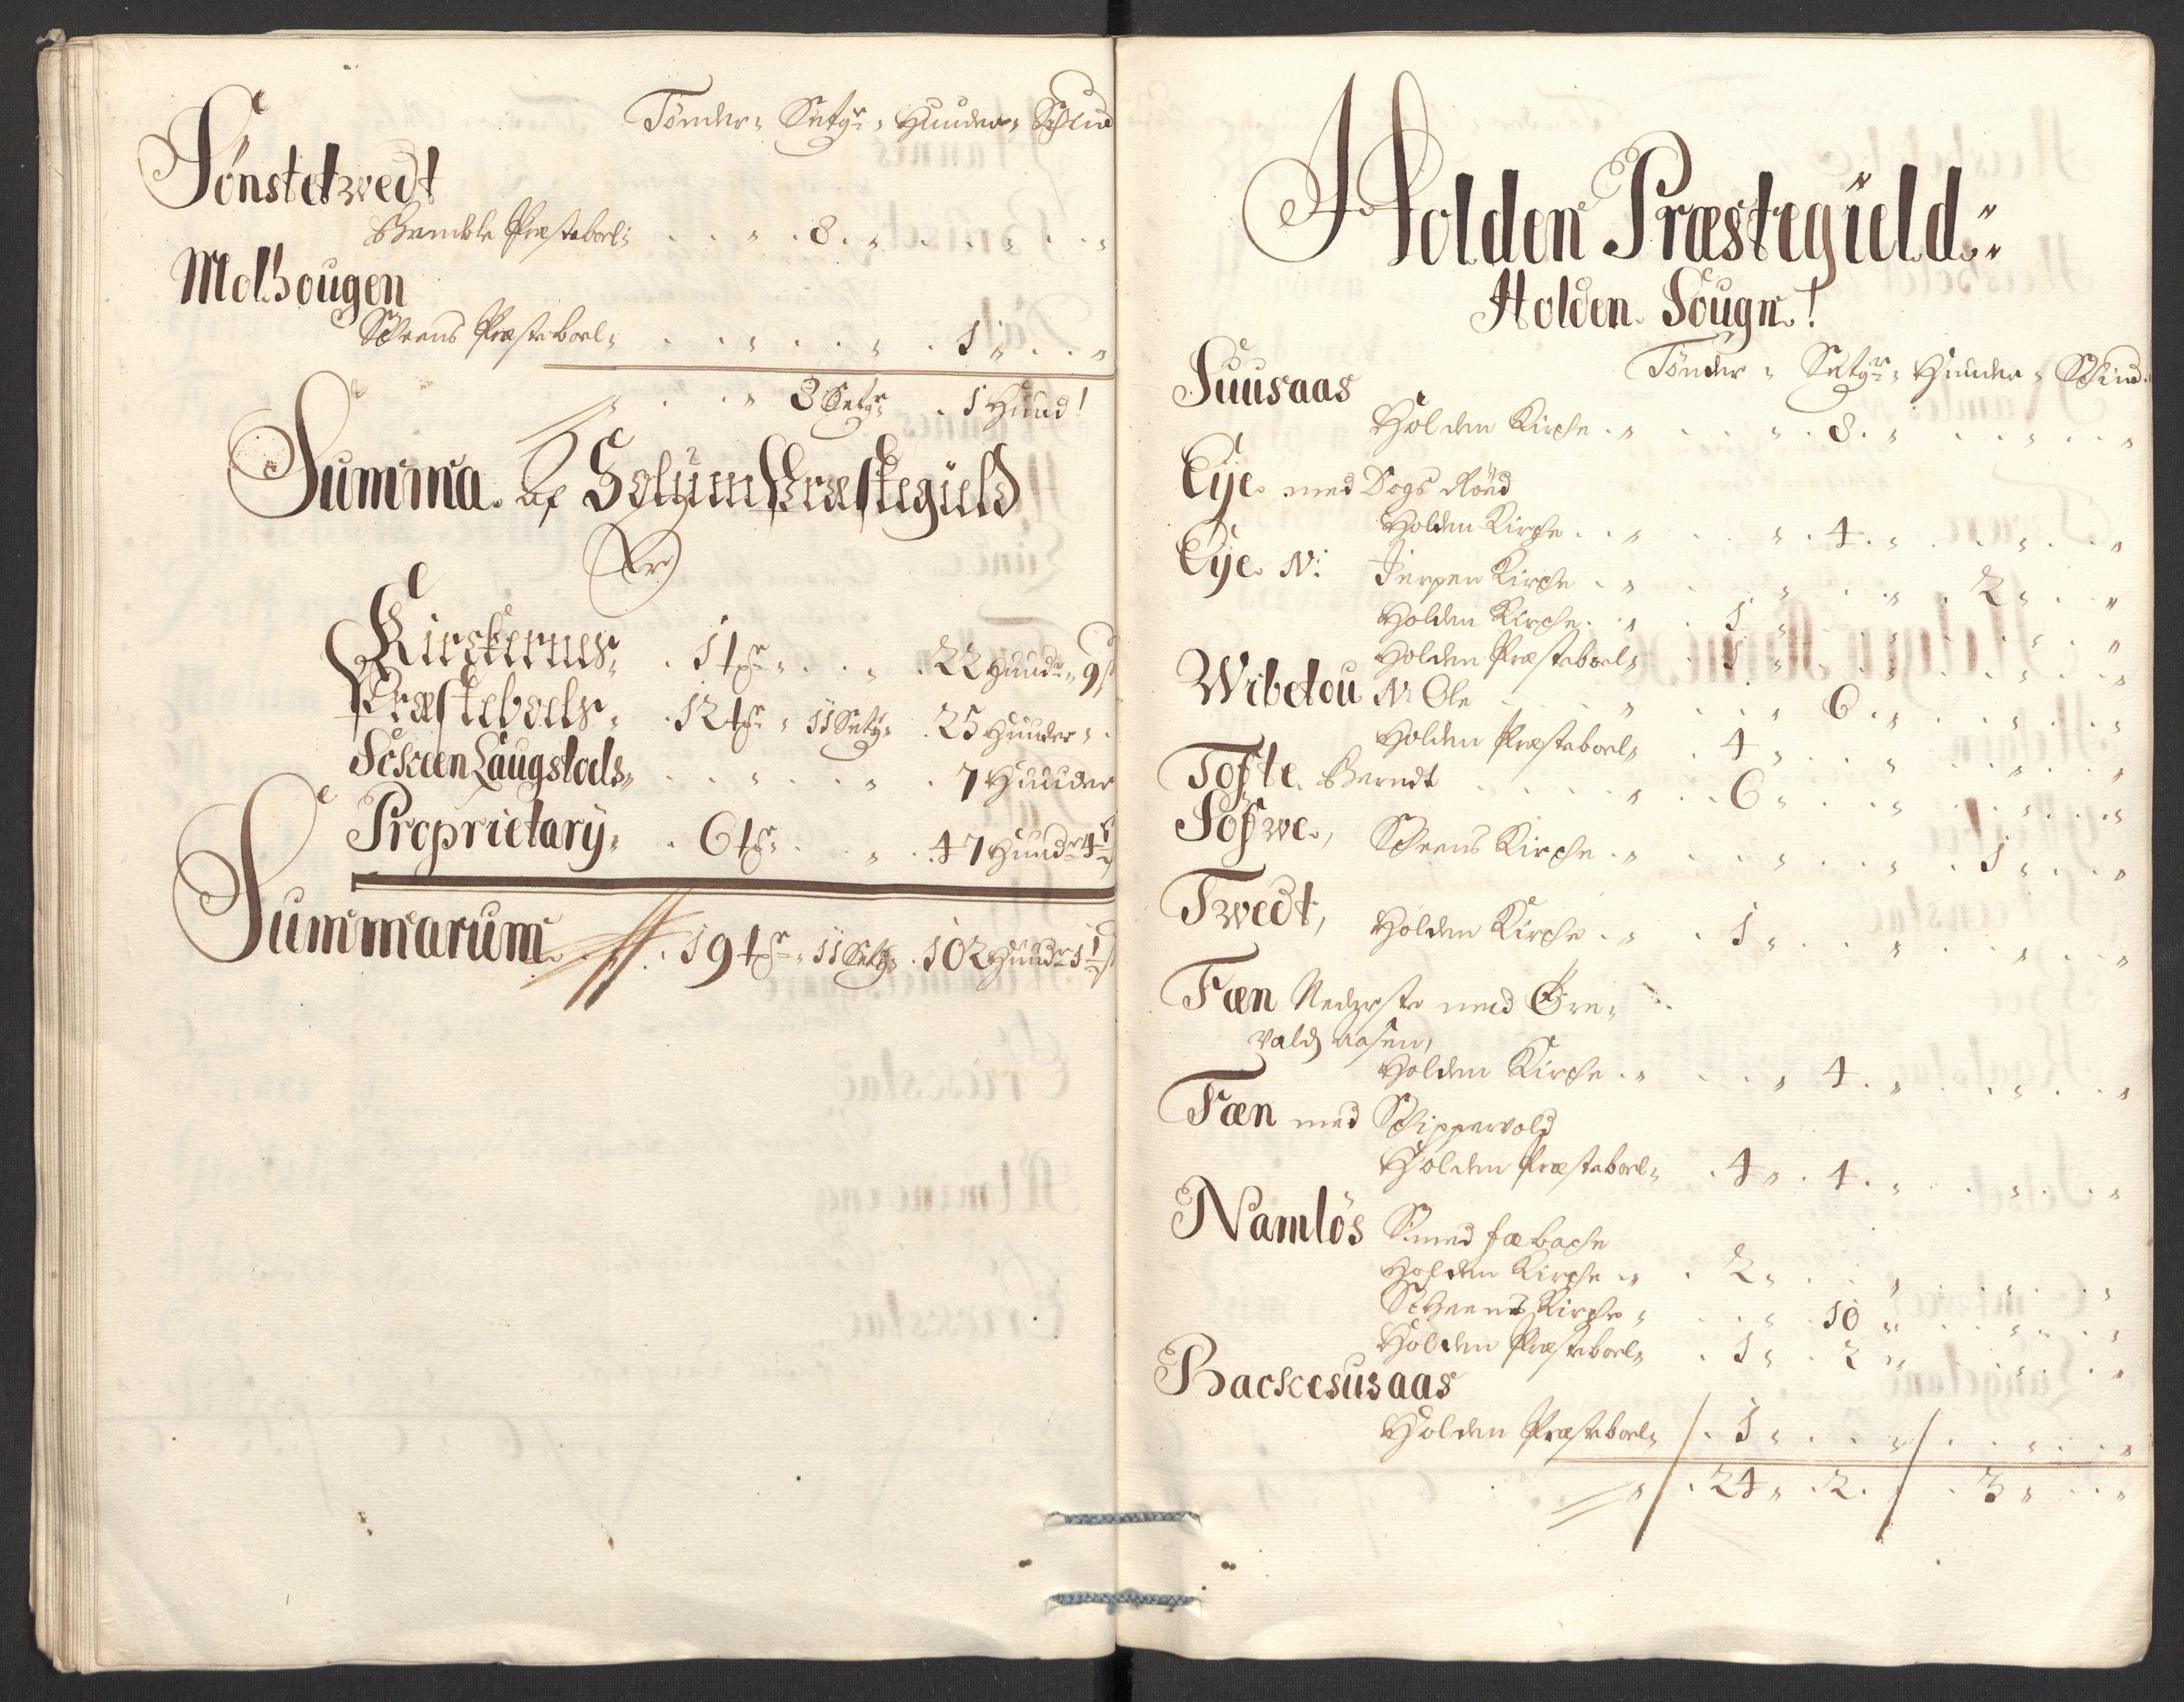 Tønder, Setgr, Huuder, Schind
Tönstetwedt
Bamble Præsteboel, . . „ . 8. „ . . . „ . . „
Molhougen
Scheens Præsteboel, . . „ . . . „ . 1 „ . . „
„ . . „ 8 Setgr . 1 Huud!
Summa. af Solum Præstegield
Er
Kirckernes, . 1 tdr „ . . „ . 22 Huudr „ 9 s
Præsteboels, . 12 tdr „ 11 Setgr . 25 Huuder „ .
Scheen Laugstoels, . . „ . . „ . 7 Huuder
Proprietary, . 6 tdr . . „ . 47 Huudr 4½
Summarum . 19 tdr „ 11 Setgr . 102 Huudr 1½
Holden Præstegield.
Holden Sougn!
Tønder „ Setgr „ Huuder „ Schind.
Suusaas
Holden Kirche . „ . . „ . 8. „ . . . „ . . „
Eye med Dogs Röed
Holden Kirche . . „ . . „ . 4. „ . . „ . . „
Eye N: Jerpen Kirche . „ . . „ . . „ . 2 „ . . „
Holden Kirche . „ . 1 „ . . „ . . „ . . „
Holden Præsteboel, . 1 „ . . „ . . „ . . „
Wibetou N: Ole . . . „ . . „ 6 . „ . . „ . . „
Holden Præsteboel, . 4 „ . . „ . . „ . . „
Tofte. Berndt . . . „ . 6 „ . . „ . . „ . . „
Söfwe, Scheens Kirche . „ . . „ . . „ . 1 „ . . „
Twedt, Holden Kirche . „ . 1 „ . . „ . . „ . . „
Fæn Nederste med Gre,
valds aasen,
Holden Kirche . „ . . „ 4 . „ . . „ . . „
Fæn med Schippervold
Holden Præsteboel, . 4 „ . 4 . „ . . „ . . „
Namlös S. med Fæbache
Holden Kirche . „ . 2 „ . . „ . . „ . . „
Scheens Kirche „ . . „ . 10 „ . . „ . . „
Holden Præsteboel, . 1 „ . 2 „ . . „ . . „
Backesusaas
Holden Præsteboel, . 1 „ . . „ . . „ . . „
„ . 24 „ . 2 . . 3 „ . . „